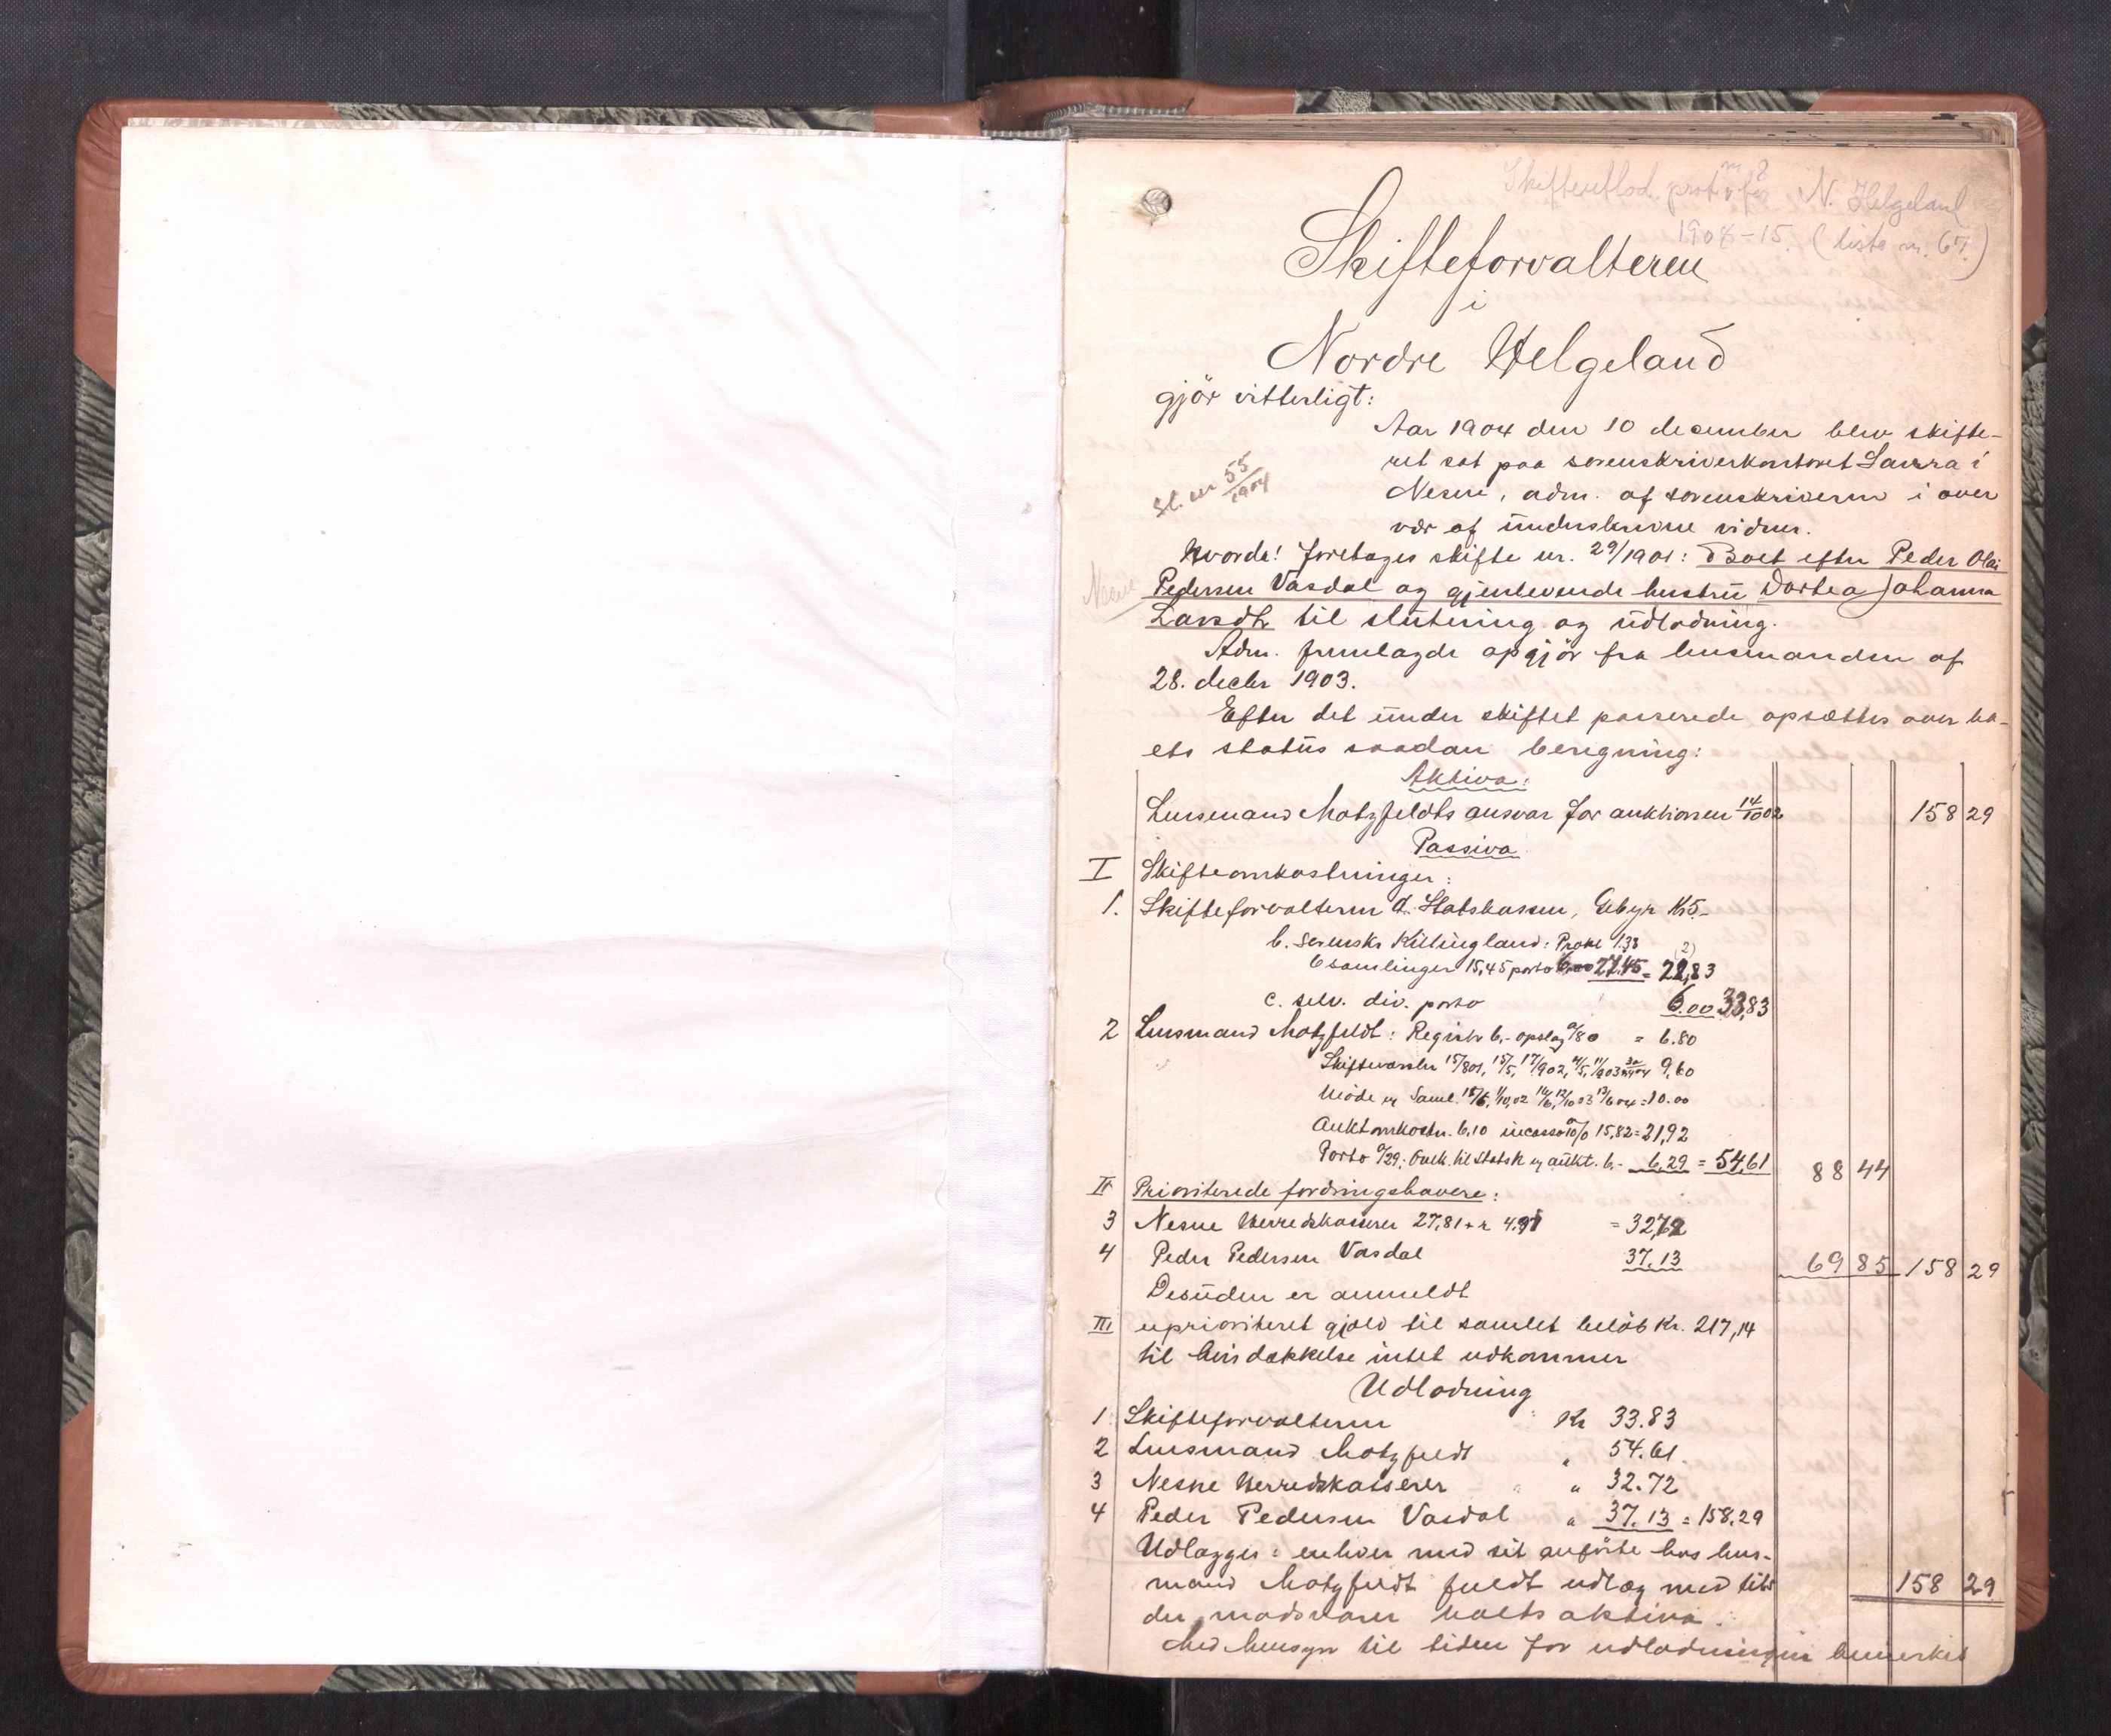 Skifteutlod. prot. nr 8 for N. Helgeland
1904-15. (liste nr. 67.)
Skifteforvalteren
i
Nordre Helgeland
gjør vitterligt:
Aar 1904 den 10 december blev skifte-
ret sat paa sorenskriverkontoret Saura i
Nesne, adm. af sorenskriveren i over
vær af underskrevne vidner.
Sl. nr 55/1904
Hvorda! Foretages skifte nr. 29/1901: Boet efter Peder Olai
Nesne
Pedersen Vasdal og gjenlevende hustru Dortea Johanna
Larsdtr til slutning og udlodning.
Adm. fremlagde opgjör fra lensmanden af
28. decbr 1903.
Efter det under skiftet passerede opsættes over bo-
ets status saadan beregning:
Aktiva:
Lensmand Motzfeldts ansvar for auktionen 14/10 02 158 29
Passiva
I Skifteomkostninger:
1. Skifteforvalteren a. Statskassen, Gebyr Kr 5.-
b. Sorenskr Killingland: Prokl 1.38
6 samlinger 15,45 porto 6,00 27.45 = 28,83
c. selv. div. porto 5.00 33,83
2 Lensmand Motzfeldt: Registr 6,- opslag 0/80 = 6.80
Skiftevarsler 15/8 01, 15/5, 17/9 02, 4/5, 1/9 03 9,60
Möde og Saml. = 10.00
Auktomkostn. 6.10 incasso 10% 15,82 = 21,92
Porto 0/29. til Statsk og aukt. 6.- 6,29 = 54,61 88 44
II Prioriterede fordringshavere:
3 Nesne Herredskasserer 27,81 + r 4.91 = 32,72
4 Peder Pedersen Vasdal 37.13 69 85 158 29
Desuden er anmeldt
III uprioriteret gjæld til samlet beløb Kr. 217,14
til hvis dækkelse intet udkommer
Udlodning
1 Skifteforvalteren Kr 33.83
2 Lensmand Motzfeldt " 54.61
3 Nesne Herredskasserer " 32.72
4 Peder Pedersen Vasdal " 37.13 = 158.29
Udlægges: enhver med sit anførte hos lens-
mand Motzfeldt fuldt udlæg med tils 158 29
der modsvarer boets aktiva.
Med hensyn til tiden for udlodningen bemerkes